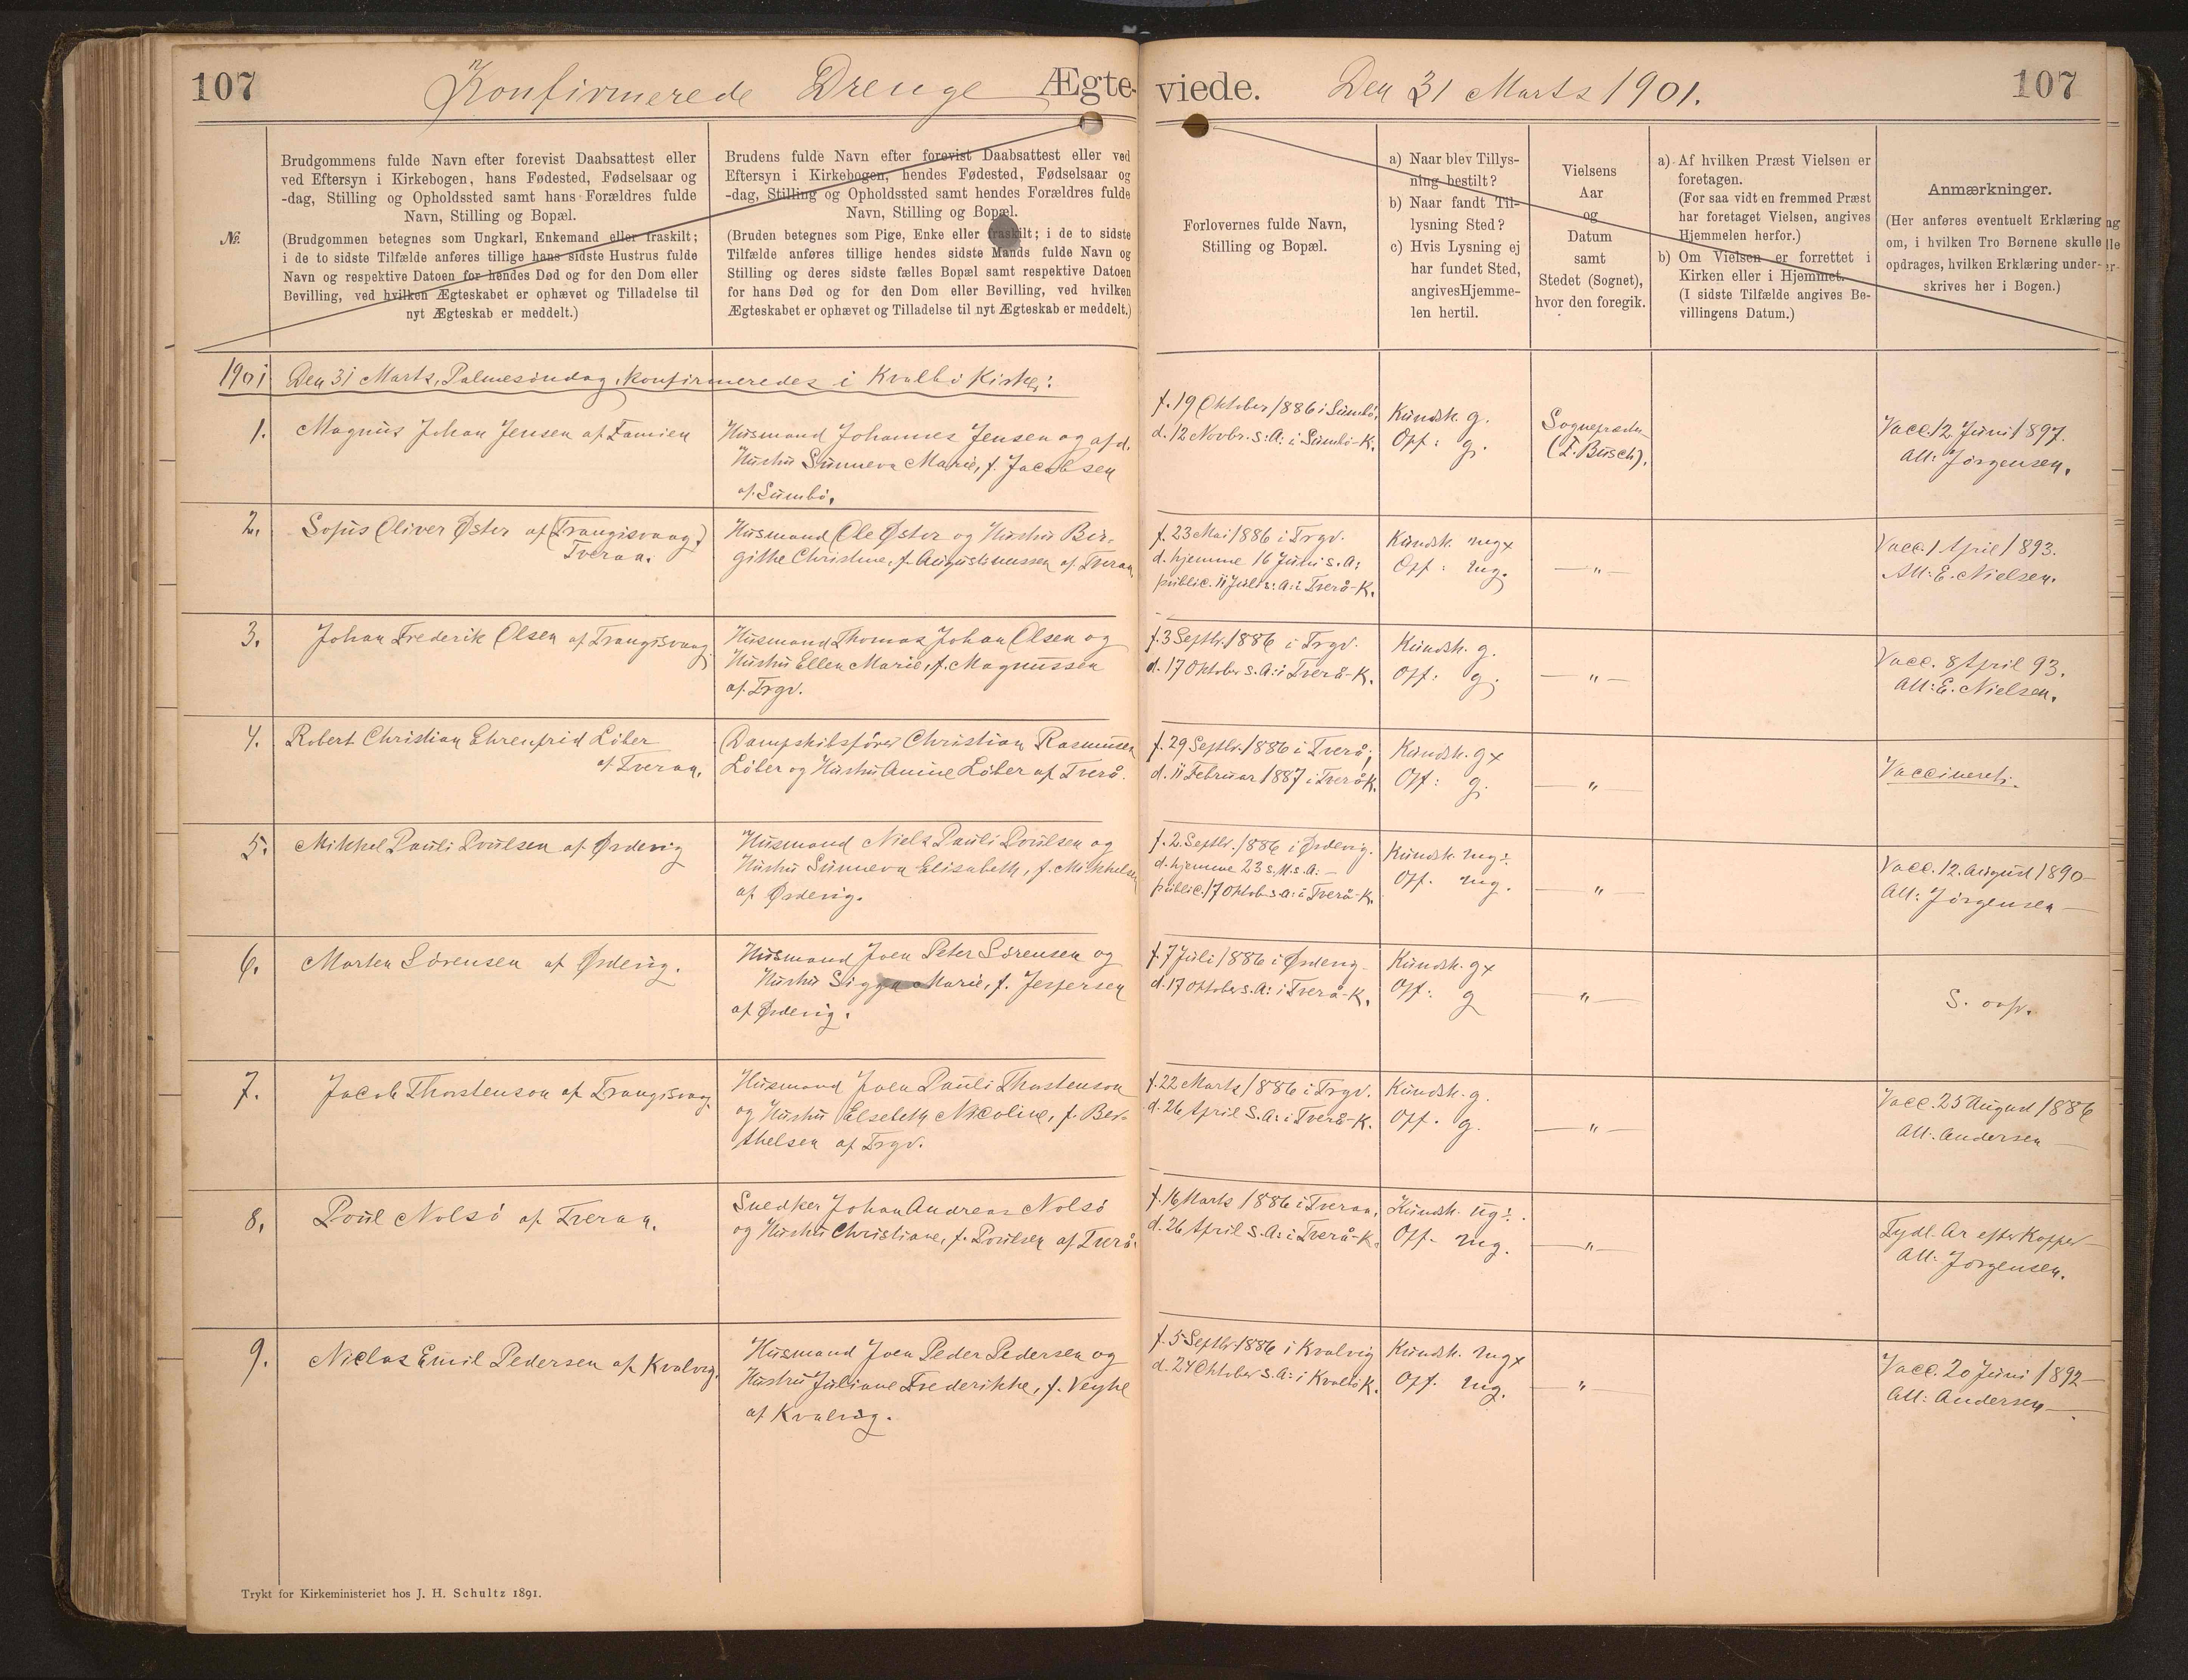 107 Konfirmerede Drenge Ægte-
viede. Den 31 Marts 1901. 107
№
Brudgommens fulde Navn efter forevist Daabsattest eller
ved Eftersyn i Kirkebogen, hans Fødested, Fødselsaar og
-dag, Stilling og Opholdssted samt hans Forældres fulde
Navn, Stilling og Bopæl.
(Brudgommen betegnes som Ungkarl, Enkemand eller fraskilt;
i de to sidste Tilfælde anføres tillige hans sidste Hustrus fulde
Navn og respektive Datoen for hendes Død og for den Dom eller
Bevilling, ved hvilken Ægteskabet er ophævet og Tilladelse til
nyt Ægteskab er meddelt.)
Brudens fulde Navn efter forevist Daabsattest eller ved
Eftersyn i Kirkebogen, hendes Fødested, Fødselsaar og
-dag, Stilling og Opholdssted samt hendes Forældres fulde
Navn, Stilling og Bopæl.
(Bruden betegnes som Pige, Enke eller fraskilt; i de to sidste
Tilfælde anføres tillige hendes sidste Mands fulde Navn og
Stilling og deres sidste fælles Bopæl samt respektive Datoen
for hans Død og for den Dom eller Bevilling, ved hvilken
Ægteskabet er ophævet og Tilladelse til nyt Ægteskab er meddelt.)
Forlovernes fulde Navn,
Stilling og Bopæl.
a) Naar blev Tillys-
ning bestilt?
b) Naar fandt Til-
lysning Sted?
c) Hvis Lysning ej
har fundet Sted,
angives Hjemme-
len hertil.
Vielsens
Aar
og
Datum
samt
Stedet (Sognet),
hvor den foregik.
a) Af hvilken Præst Vielsen er
foretagen.
(For saa vidt en fremmed Præst
har foretaget Vielsen, angives
Hjemmelen herfor.)
b) Om Vielsen er forrettet i
Kirken eller i Hjemmet.
(I sidste Tilfælde angives Be-
villingens Datum.)
Anmærkninger.
(Her anføres eventuelt Erklæring
om, i hvilken Tro Børnene skulle
opdrages, hvilken Erklæring under-
skrives her i Bogen.)
1901 Den 31 Marts, Palmesöndag, konfirmeredes i Kvalbö Kirke:
1. Magnus Johan Jensen af Famien
Husmand Johannes Jensen og afd.
Hustru Sunneva Marie, f. Jacobsen
af Sumbö.
f. 19 Oktober 1886 i Sumbö,
d. 12 Novbr. s: A: i Sumbö-K.
Kundsk. g.
Opf: g.
Sognepræsten
(F. Busch).
Vacc. 12 Juni 1897.
Att: Jörgensen.
2. Sofus Oliver Øster af (Trangisvaag)
Tveraa.
Husmand Ole Øster og Hustru Bir-
githe Christine, f. Augustinussen af Tveraa
f. 23 Mai 1886 i Trgv.
d. hjemme 16 Juni s. A:
public. 11 Juli s: A: i Tverå-K.
Kundsk. mg x
Opf: mg.
— " —
Vacc. 1 April 1893.
Att: E. Nielsen.
3. Johan Frederik Olsen af Trangisvaag.
Husmand Thomas Johan Olsen og
Hustru Ellen Marie, f. Magnussen
af Trgv.
f. 3 Septbr. 1886 i Trgv.
d. 17 Oktober s. A: i Tverå-K.
Kundsk. g.
Opf: g.
— " —
Vacc. 8 April 93.
Att: E. Nielsen.
4. Robert Christian Ehrenfrid Löber
af Tveraa.
Dampskibsförer Christian Rasmussen
Löber og Hustru Anine Löber af Tverå.
f. 29 Septbr. 1886 i Tverå;
d. 11 Februar 1887 i Tverå K.
Kundsk. g x
Opf: g.
— " —
Vaccineret.
5. Mikkel Pauli Poulsen af Ørdevig
Husmand Niels Pauli Poulsen og
Hustru Sunneva Elisabeth, f. Mikkelsen
af Ørdevig.
f. 2. Septbr. 1886 i Ørdevig.
d. hjemme 23 s. M. s. A: —
public. 17 Oktob. s. A: i Tverå-K.
Kundsk. mg ÷
Opf. mg.
— " —
Vacc. 12. August 1890 —
Att: Jörgensen —
6. Morten Sörensen af Ørdevig.
Husmand Joen Peter Sörensen og
Hustru Sigga Marie, f. Jespersen
af Ørdevig.
f. 7 Juli 1886 i Ørdevig
d. 17 Oktober s. A: i Tverå-K.
Kundsk. g x
Opf: g
— " —
S. ovfr.
7. Jacob Thorstenson af Trangisvaag.
Husmand Joen Pauli Thorstenson
og Hustru Elsebeth Nicoline, f. Ber-
thelsen af Trgv.
f. 22 Marts 1886 i Trgv.
d. 26 April s. A: i Tverå-K.
Kundsk. g.
Opf. g.
— " —
Vacc. 25 August 1886
Att: Andersen —
8. Poul Nolsö af Tveraa.
Snedker Johan Andreas Nolsö
og Hustru Christiane, f. Poulsen af Tverå.
f. 16 Marts 1886 i Tveraa,
d. 26 April s. A: i Tverå-K.
Kundsk. ug ÷.
Opf. mg.
— " —
Tydl. Ar efter Kopper —
Att: Jörgensen.
9. Niclas Emil Pedersen af Kvalvig.
Husmand Joen Peder Pedersen og
Hustru Juliane Frederikke, f. Veyhe
af Kvalvig.
f. 5 Septbr. 1886 i Kvalvig
d. 24 Oktober s. A: i Kvalbö K.
Kundsk. mg x
Opf. mg.
— " —
Vacc. 20 Juni 1892 —
Att: Andersen —
Trykt for Kirkeministeriet hos J. H. Schultz 1891.